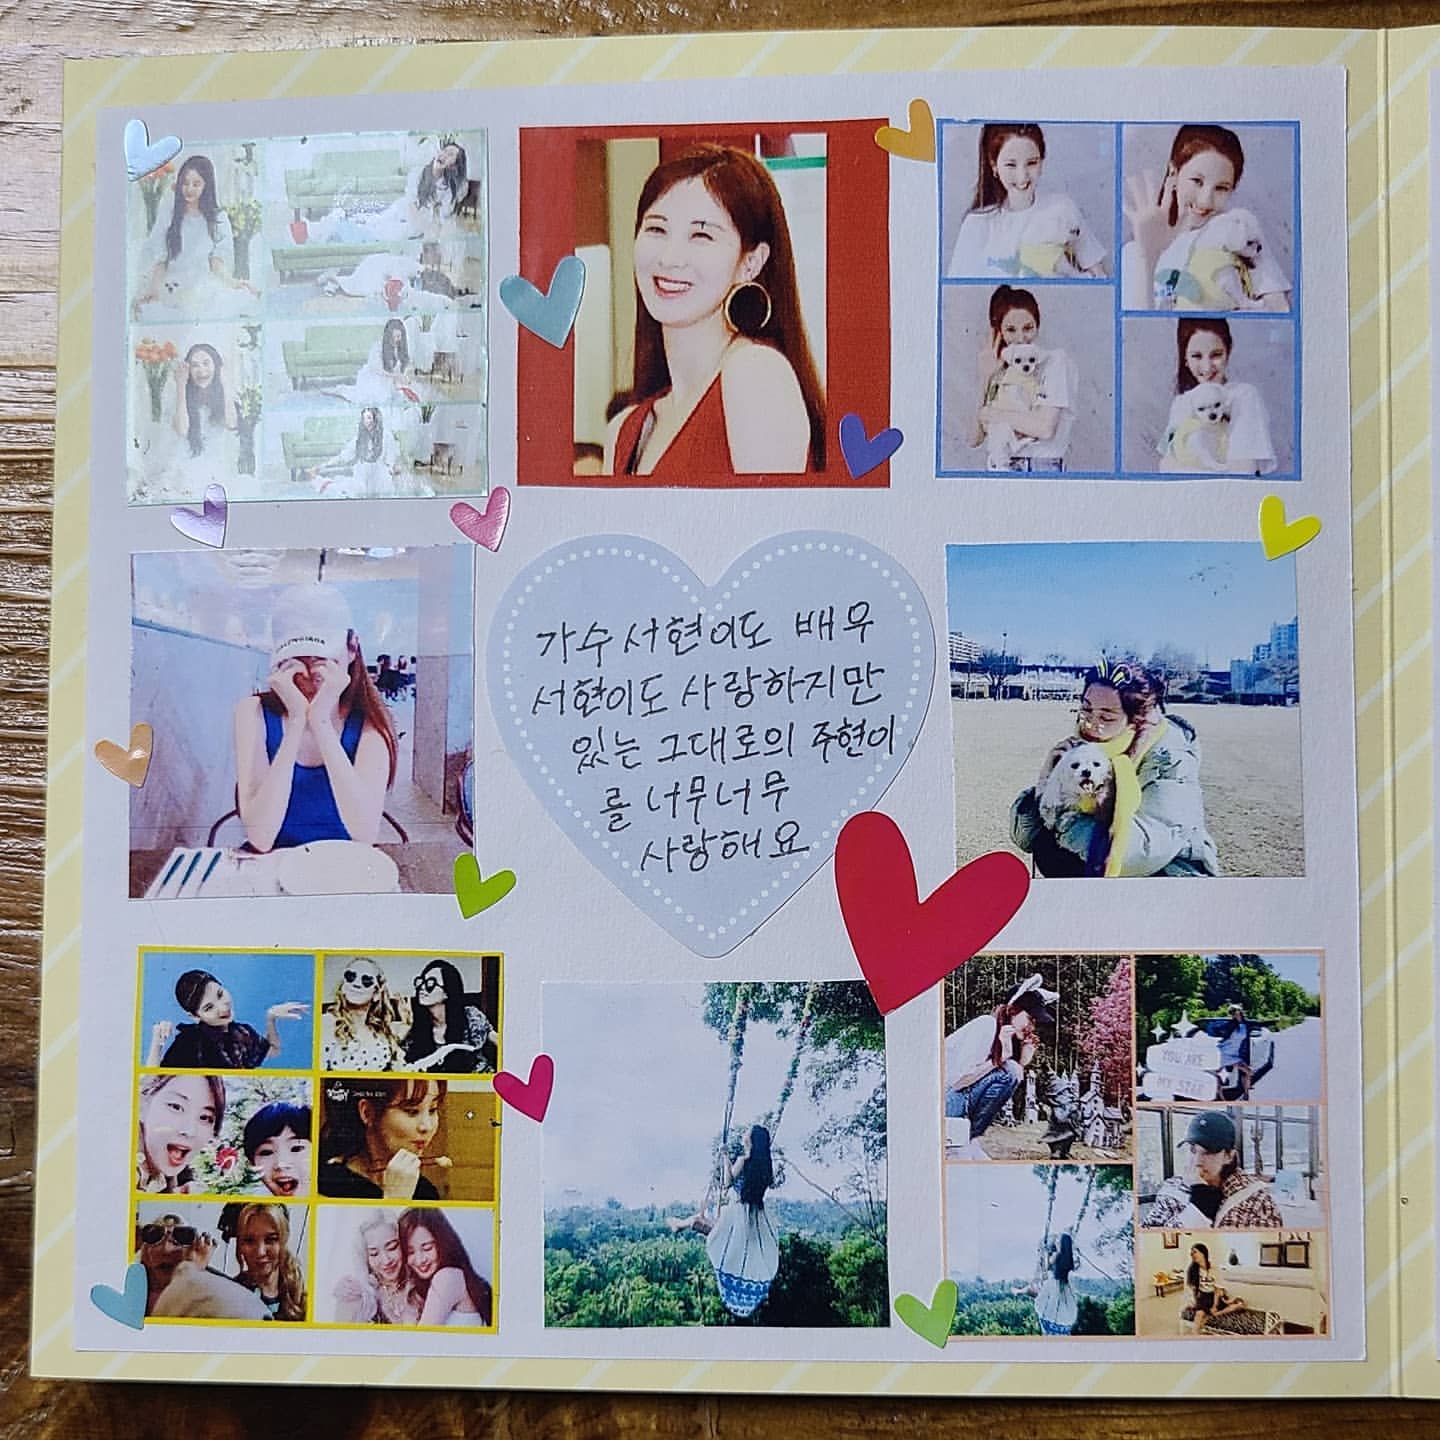 가수 서현이도 배우
서현이도 사랑하지만
있는 그대로의 주현이
를 너무너무
사랑해요
YOU ARE
MY STAR